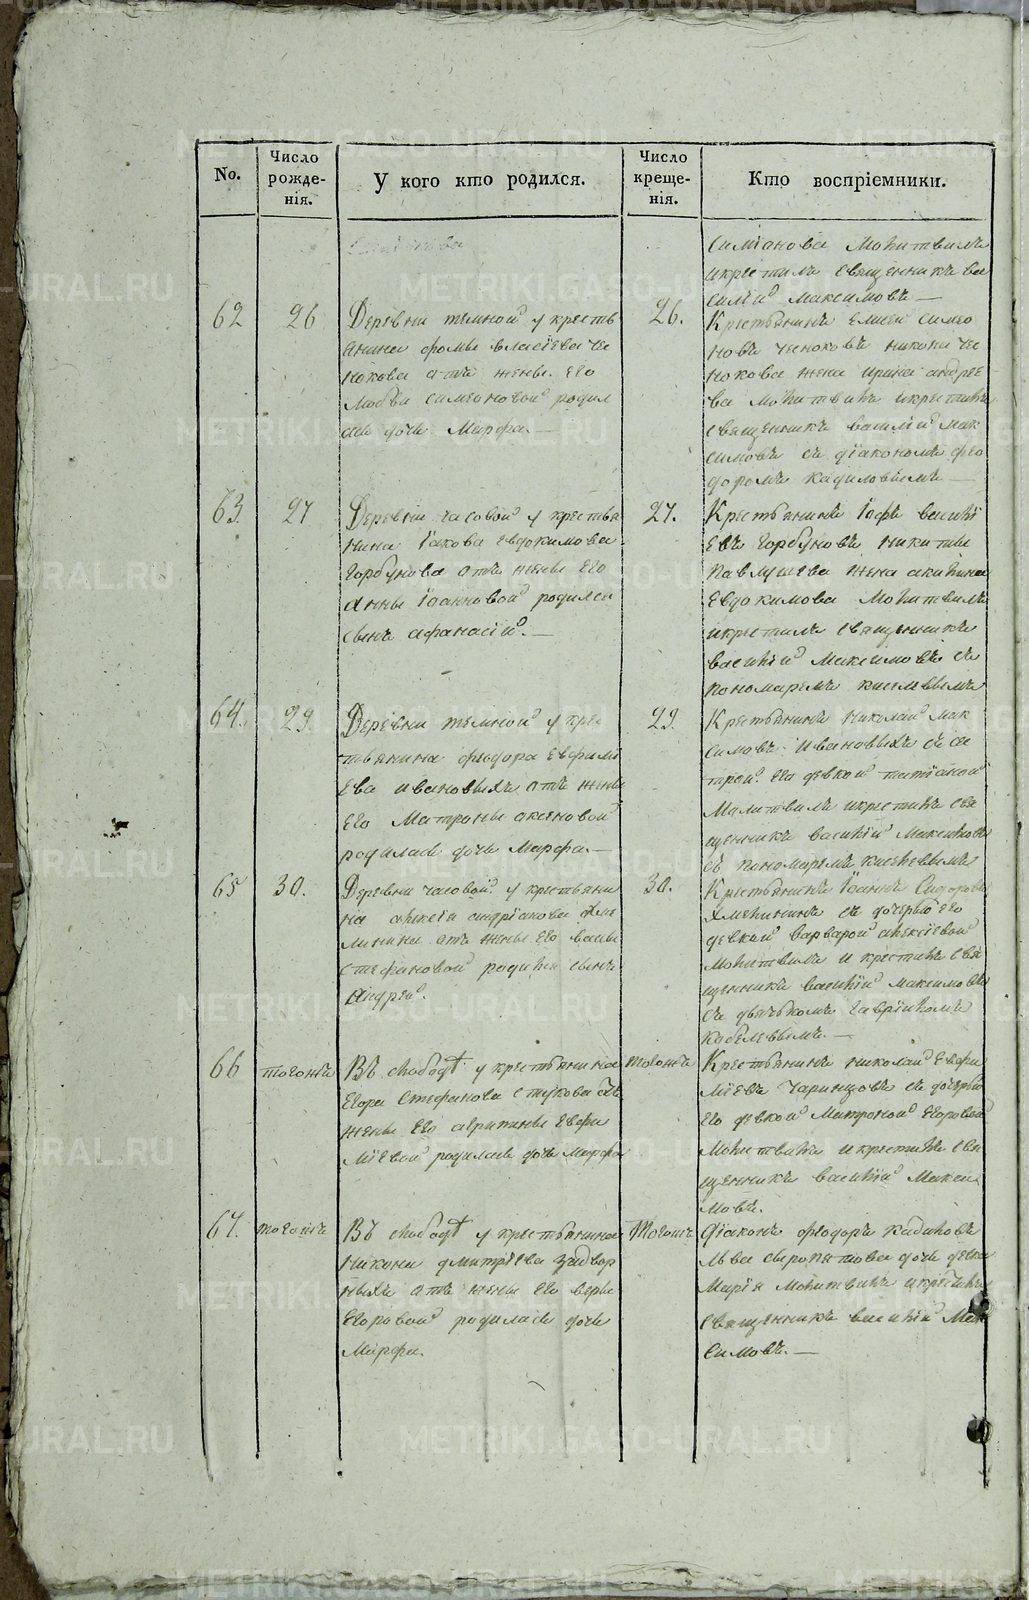 No.
Число рожде-нія.
У кого кто родился.
Число креще-нія.
Кто воспріемники.
Симіанова Молитвилъ
икрестилъ священникъ ва
силій Максимовъ —
62
26
Деревни темной у кресть
янина фомы власіева чес
нокова отъ жены его
Симеоновой родил
ась дочь Марфа. —
26.
Крестьянинъ Елисей симео
новъ чесноковъ никона чес
нокова жена ирина андрее
ва Молитвилъ икрестилъ
священникъ василій мак
симовъ съ діакономъ фео
доромъ кадиловымъ —
63.
27
Деревни часовой у крестья
нина Іакова Евдокимова
Горбунова отъ жены Его
Анны Іоанновой родился
сынъ афанасій. —
27.
Крестьянинъ васи
евъ горбуновъ никиты
Павлушева жена акилина
Евдокимова Молитвилъ
икрестилъ священникъ
василій Максимовъ съ
пономаремъ киселевымъ
64.
29.
Деревни темной у крес
тьянина феодора Евфимі
ева ивановыхъ отъ жены
Его Матроны
родилась дочь Марфа. —
29.
Крестьянинъ николай мак
симовъ ивановыхъ съ сес
трой его девкой татіаной
Малитвилъ икрестилъ свя
щенникъ василій Максимовъ
съ пономаремъ киселевымъ
65
30.
Деревни часовой у крестьяни
на алексія андріанова
отъ жены его
стефановой родился сынъ
Андрей.
30.
Крестьянинъ Іоаннъ Сидоровъ
съ дочерью его
девкой варварой алексіевой
Молитвилъ и крестилъ свя
щенникъ василій максимовъ
съ дьячкомъ гавріиломъ
кобелевымъ. —
66
тогожъ
Въ слободѣ у крестьянина
Егора Стефанова стукова отъ
жены его агрипины Евфи
міевой родилась дочь марфа
тогожъ
Крестьянинъ николай Евфи
міевъ чаринцовъ съ дочерью
его девкой Матроной Егоровой
Молитвилъ икрестилъ свя
щенникъ василій Макси
мовъ.
67.
тогожъ
Въ слободѣ у крестьянина
никона дмитріева задвор
ныхъ отъ жены его веры
Егоровой родилась дочь
Марфа.
Тогожъ
Діаконъ феодоръ кадиловъ
льва сыропятова дочь девка
Марія Молитвилъ икрестилъ
священникъ василій Мак
симовъ. —
METRIKI.GASO-URAL.RU